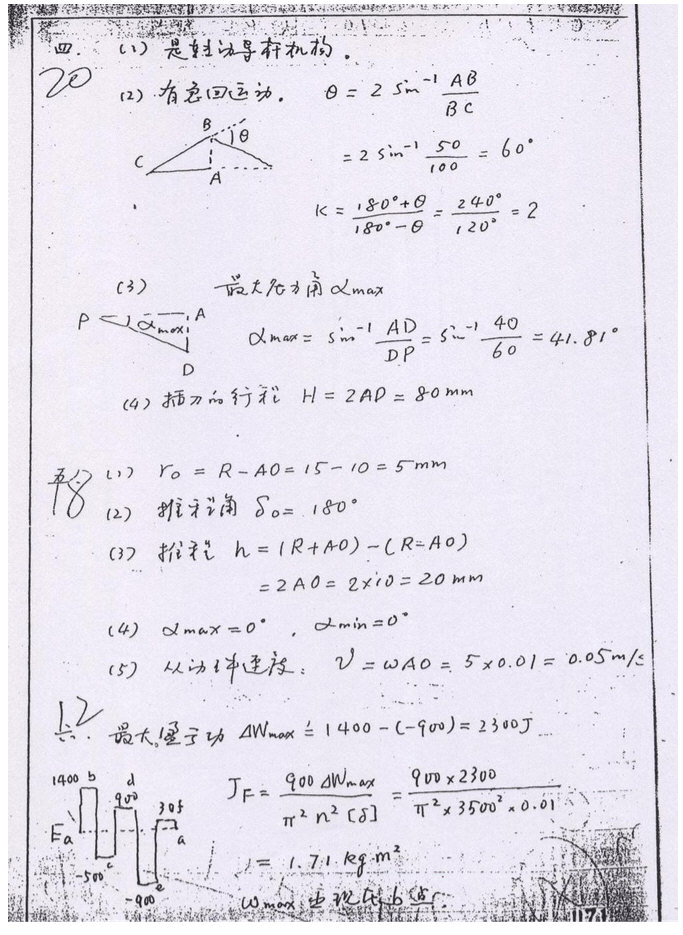 四. (1) 是转动导杆机构.
20
(2) 有急回运动. θ = 2 sin⁻¹ AB/BC
B θ
C A
= 2 sin⁻¹ 50/100 = 60°
K = 180°+θ/180°-θ = 240°/120° = 2
(3) 最大压力角 αmax
P αmax A
D
αmax = sin⁻¹ AD/DP = sin⁻¹ 40/60 = 41.81°
(4) 插刀的行程 H = 2AD = 80mm
五. (1) r₀ = R-AO = 15-10 = 5mm
18
(2) 推程角 δ₀ = 180°
(3) 推程 h = (R+AO)-(R-AO)
= 2AO = 2×10 = 20mm
(4) αmax = 0°, αmin = 0°
(5) 从动件速度: v = ωAO = 5×0.01 = 0.05m/s
12
六. 最大盈亏功 ΔWmax = 1400-(-900) = 2300J
1400 b d
900 305
Ea a
-500 c
-900 e
J_F = 900ΔWmax/π²n²[δ] = 900×2300/π²×3500²×0.01
= 1.71 kg m²
ωmax 出现在b点.